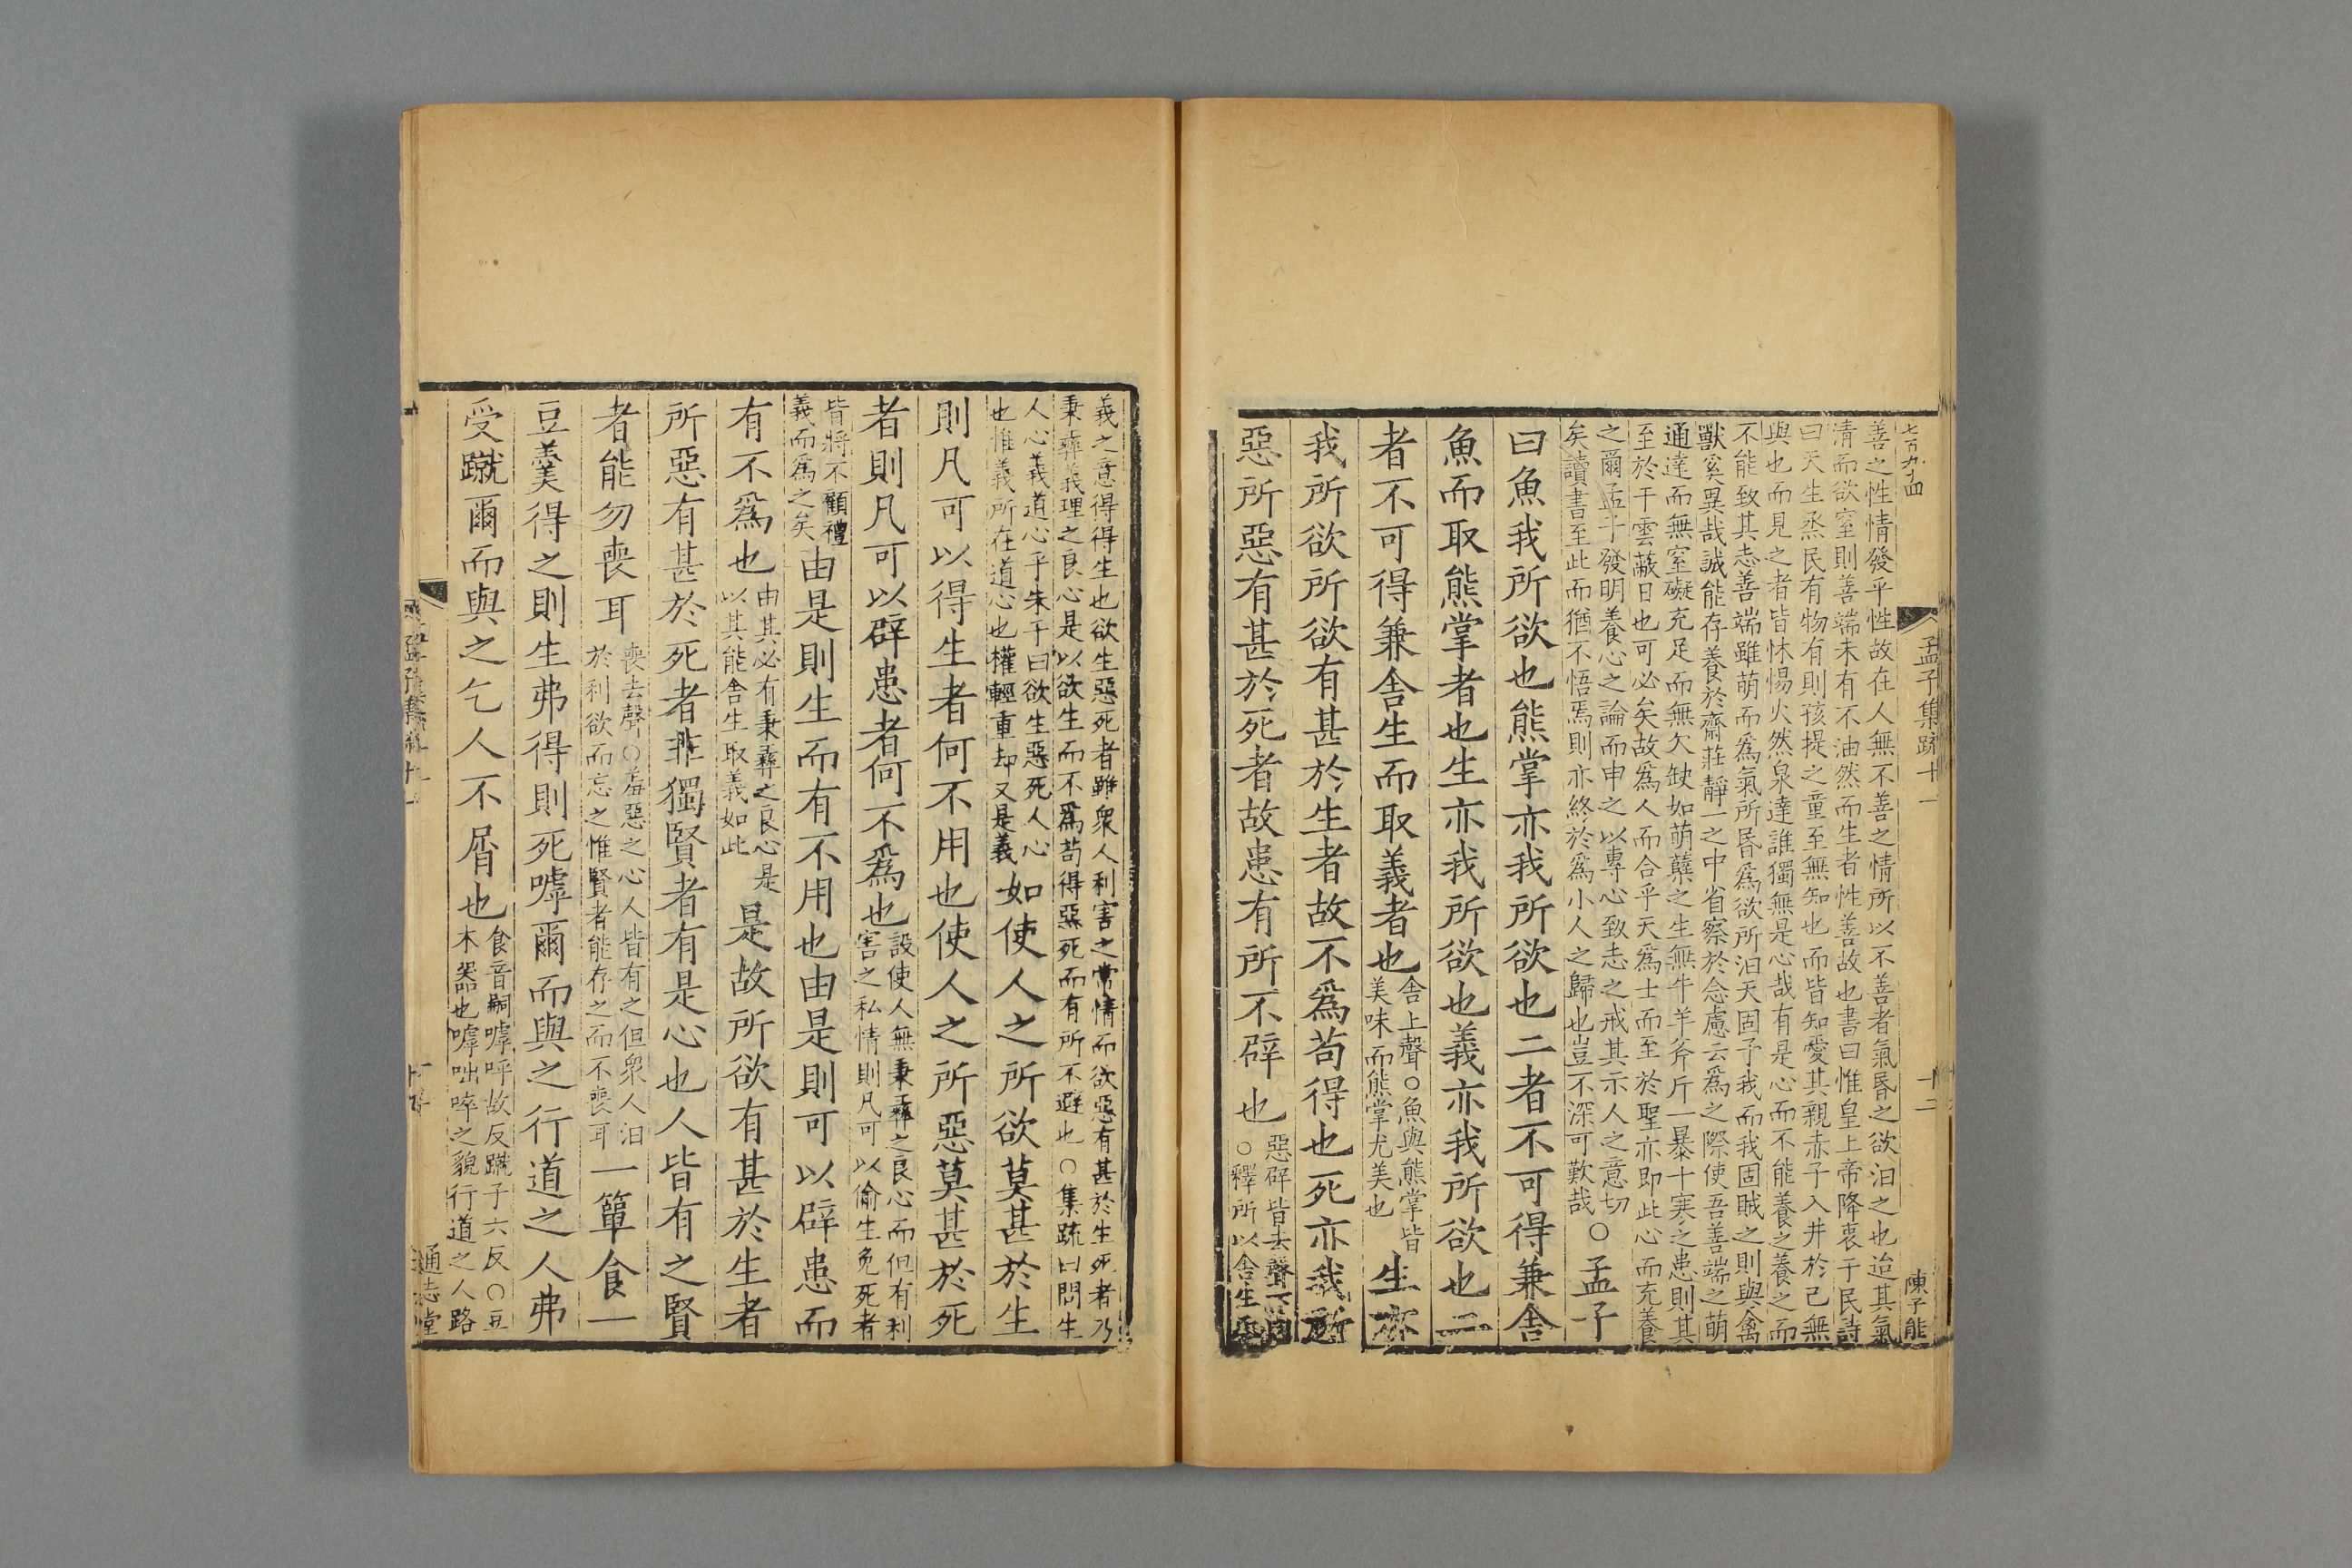 七百九十四
孟子集疏十一
十二
陳子能
善之性情發乎性故在人無不善之情所以不善者氣昏之欲汨之也迨其氣
清而欲窒則善端未有不油然而生者性善故也書曰惟皇上帝降衷于民詩
曰天生烝民有物有則孩提之童至無知也而皆知愛其親赤子入井於己無
與也而見之者皆怵惕火然泉達誰獨無是心哉有是心而不能養之養之而
不能致其志善端雖萌而爲氣所昏爲欲所汨天固予我而我固賊之則與禽
獸奚異哉誠能存養於齋莊靜一之中省察於念慮云爲之際使吾善端之萌
通達而無窒礙充足而無欠缺如萌蘖之生無牛羊斧斤一暴十寒之患則其
至於干雲蔽日也可必矣故爲人而合乎天爲士而至於聖亦即此心而充養
之爾孟子發明養心之論而申之以專心致志之戒其示人之意切
矣讀書至此而猶不悟焉則亦終於爲小人之歸也豈不深可歎哉
○孟子
曰魚我所欲也熊掌亦我所欲也二者不可得兼舍
魚而取熊掌者也生亦我所欲也義亦我所欲也二
者不可得兼舍生而取義者也
舍上聲○魚與熊掌皆
美味而熊掌尤美也
生亦
我所欲所欲有甚於生者故不爲苟得也死亦我所
惡所惡有甚於死者故患有所不辟也
惡辟皆去聲下同
○釋所以舍生取
義之意得得生也欲生惡死者雖衆人利害之常情而欲惡有甚於生死者乃
秉彝義理之良心是以欲生而不爲苟得惡死而有所不避也○集疏曰問生
人心義道心乎朱子曰欲生惡死人心
也惟義所在道心也權輕重却又是義
如使人之所欲莫甚於生
則凡可以得生者何不用也使人之所惡莫甚於死
者則凡可以辟患者何不爲也
設使人無秉彝之良心而但有利
害之私情則凡可以偷生免死者
皆將不顧禮
義而爲之矣
由是則生而有不用也由是則可以辟患而
有不爲也
由其必有秉彝之良心是
以其能舍生取義如此
是故所欲有甚於生者
所惡有甚於死者非獨賢者有是心也人皆有之賢
者能勿喪耳
喪去聲○羞惡之心人皆有之但衆人汨
於利欲而忘之惟賢者能存之而不喪耳
一簞食一
豆羹得之則生弗得則死嘑爾而與之行道之人弗
受蹴爾而與之乞人不屑也
食音嗣嘑呼故反蹴子六反○豆
木器也嘑咄啐之貌行道之人路
通志堂